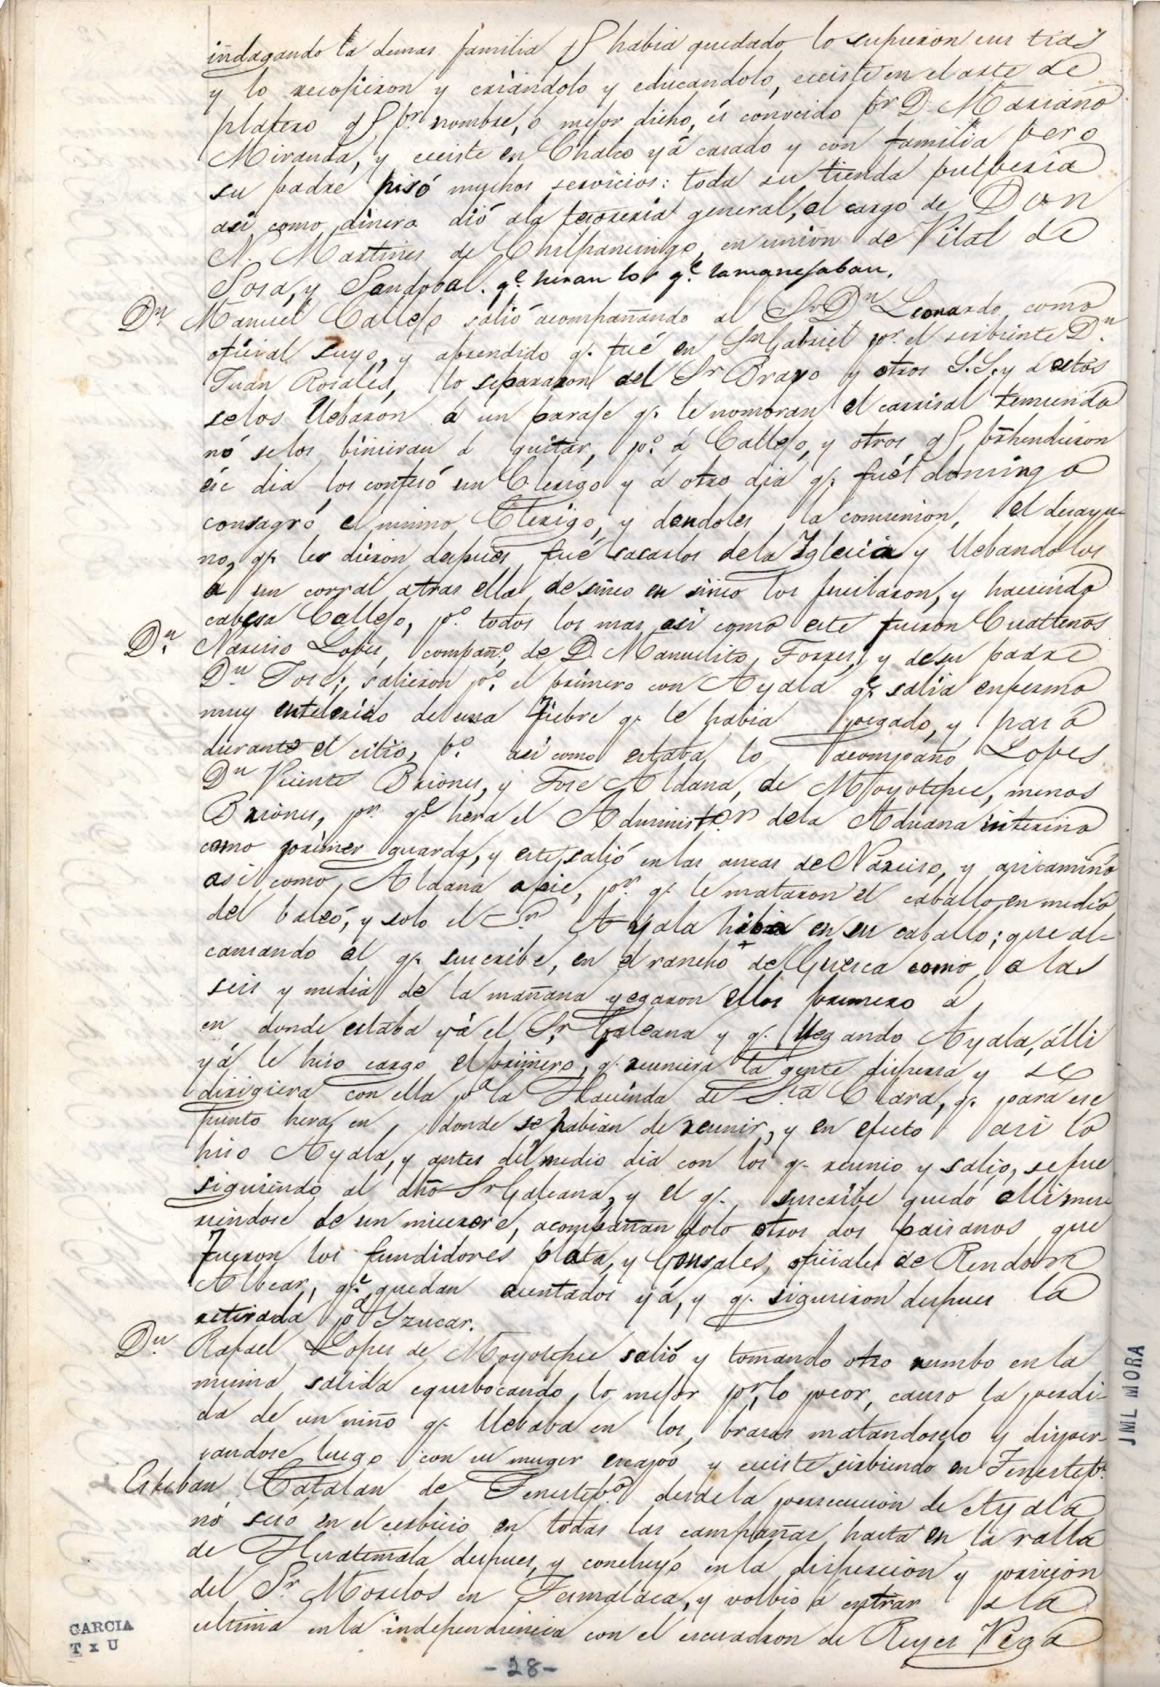 indagando la demas familia q͠ habia quedado, lo supieron sus tias
y lo recojieron y criándolo y educandolo, ecciste en el arte de
platero q͠ pr. nombre, o mejor dicho, és conocido pr D. Mariano
Miranda, y ecciste en Chalco yá casado y con familia pero
su padre hisó muchos servicios: toda su tienda pulperia
asi como dinero dió ala tesoreria general, al cargo de Don
N. Martines de Chilpancingo, en union de Vital de
Sosa, y Sandobal. qe. heran los qe. la manejaban.
Dn. Manuel Callejo salió acompañando al Sr. Dn Leonardo, como
oficial suyo, y aprendido q. fué en Sn Gabriel pr. el sirbiente Dn
Juan Rosales, lo separaron del Sr Bravo y otros S.S. y a estos
selos llebaron á un paraje q. le nombran el carrisal temiendo
nó se los binieran á quitar, po. á Callejo, y otros q͠ prehendieron
ese dia los confesó un Clerigo y á otro dia q. fué domingo
consagró, el mismo Clerigo, y dandoles la comunion, el desayu-
no, q. les dieron despues fué sacarlos dela Iglecia y llebandolos
a un corral atras ella, de sinco en sinco los fucilaron, y haciendo
cabesa Callejo, po. todos los mas asi como este fueron Cuatlenos
Dn. Narciso Lopes, compañº. de D. Manuelito Torres, y de su padre
Dn José; salieron po. el primero con Ayala qe. salia enfermo
muy entelerido de una fiebre q. le habia pegado, y pasó
durante el citio, po. asi como estaba lo acompaño Lopes
Dn Vicente Briones, y Jose Aldana, de Moyotepec, menos
Briones, pr. qe hera el Administor. dela Aduana interino
como primer guarda, y este salió en las ancas de Narciso, y asi camino
asi como, Aldana apie, pr. q. le mataron el caballo, en medio
del baleó, y solo el Sr. Ayala hiba en su caballo; que al-
cansando al q. suscribe, en el rancho de Guesca como, a las
seis y media de la mañana yegaron ellos primero á
en donde estaba yá el Sr Galeana y q. llegando Ayala, alli
yá le hiso cargo el primero, q. reuniera la gente dispersa y se
dirigiera con ella pa la Hacienda de Sta Clara, q. para ese
punto hera, en donde se habian de reunir, y en efecto asi lo
hiso Ayala, y antes del medio dia con los q. reunio y salio, se fue
siguiendo al dho Sr Galeana, y el q. suscribe quedó alli mu-
riendose de un miserere, acompañan dolo otros dos paisanos que
fueron los fundidores plata, y Gonsales, oficiales de Rendon
Albear, qe. quedan asentados yá, y q. siguieron despues la
retirada pa Yzucar.
Dn Rafael Lopes de Moyotepec salió y tomando otro rumbo en la
misma salida equibocando lo mejor por lo peor, causo la perdi-
da de un niño q. llebaba en los brasos matandoselo y disper-
sandose luego con su muger escapó y ecciste sirbiendo en Tenestepo.
Esteban Catalan de Tenestepo. desde la persecución de Ayala
nó sesó en el serbicio en todas las campañas hasta en la ralla
de Huatemala despues, y concluyó en la dispercion y pricion
del Sr. Morelos en Temalaca, y volbio á entrar a la
ultima en la independiencia con el escuadron de Reyes Vega
-28-
GARCIA
T x U
JML MORA